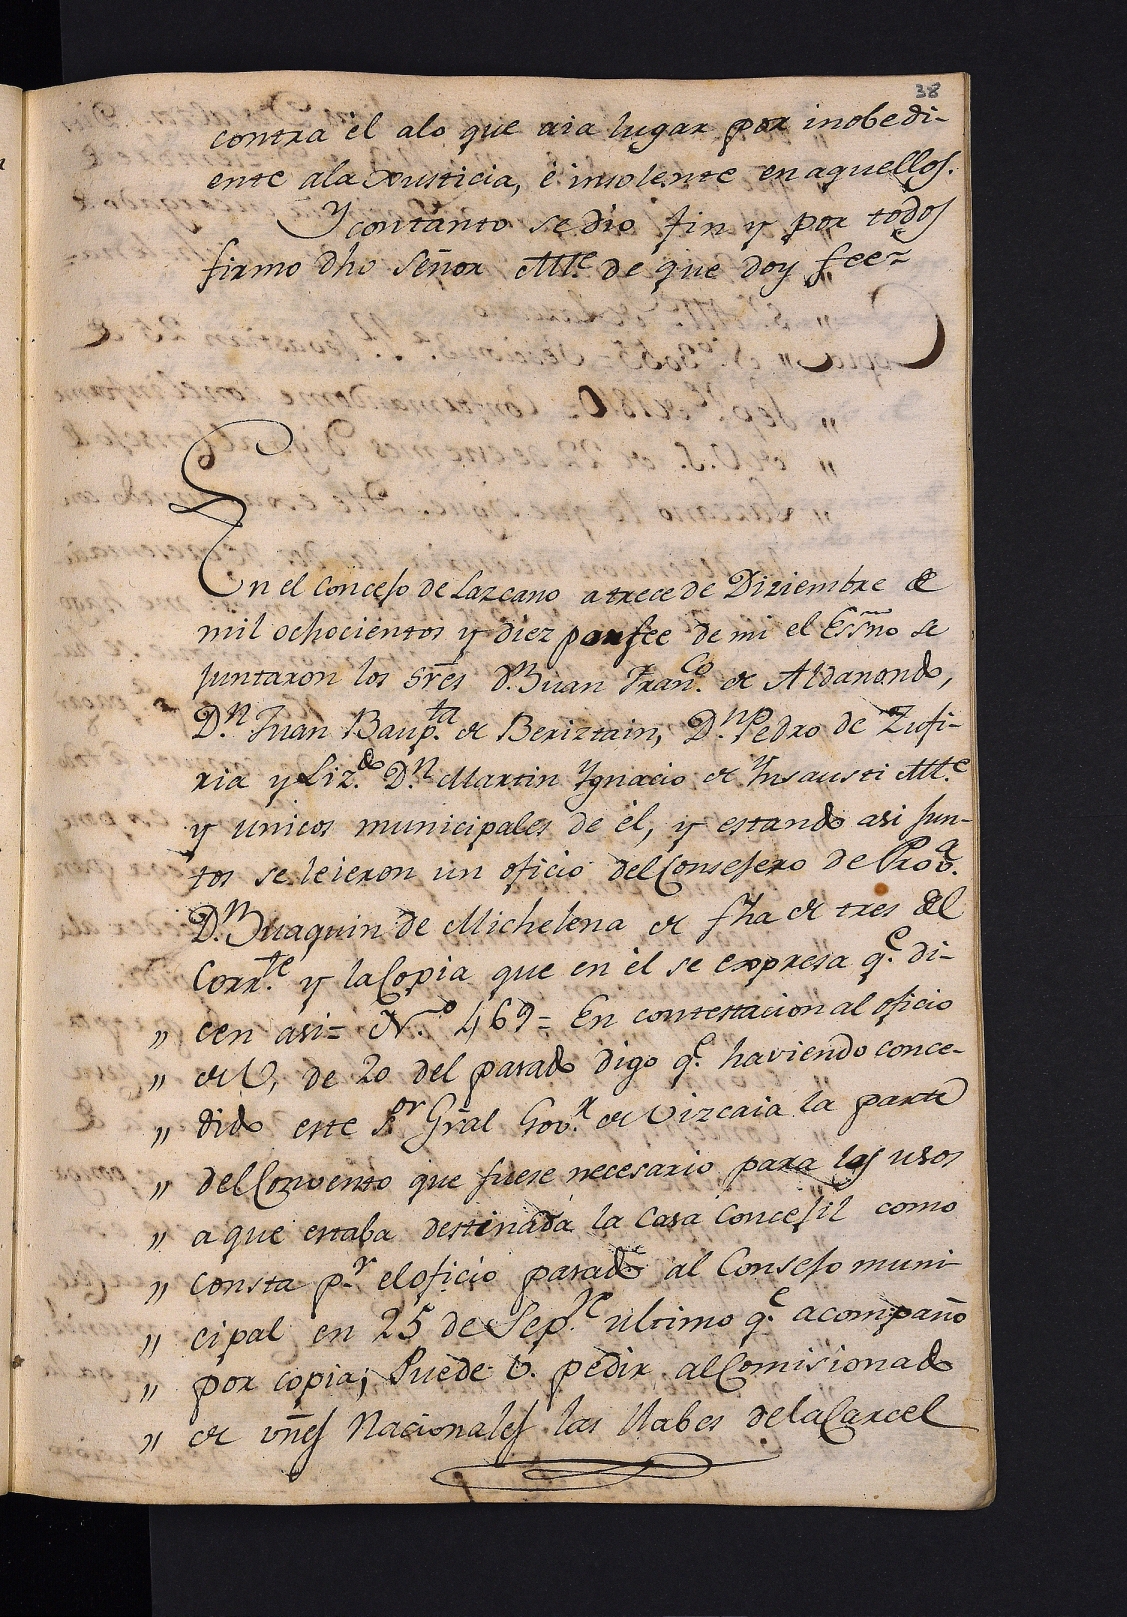 38
contra él alo que aia lugar por inobedi-
ente ala Xusticia, é insolente en aquellos.
Y contanto se dio fin y por todos
firmo dho Señor Mre. de que doy fee=
En el Concejo de Lazcano a trece de Diziembre de
mil ochocientos y diez por fee de mi el Essno se
juntaron los Sres Dn. Juan Franco. de Aldanondo,
Dn. Juan Baupta. de Beriztain, Dn. Pedro de Zufi-
ria y Lizdo. Dn. Martin Ygnacio de Ynsausti Mre.
y unicos municipales de él, y estando asi jun-
tos se leieron un oficio del Consejero de Prova.
Dn. Juaquin de Michelena de fha de tres del
Corrte. y la Copia que en él se expresa qe. di-
" cen asi= N.o 469= En contestacion al oficio
" de V, de 20 del pasado digo qe. haviendo conce-
" dido este Sor. Gral Govr. de Vizcaia la parte
" del Convento que fuese necesario para los usos
" a que estaba destinada la Casa Concejil como
" consta pr. el oficio pasado al Consejo muni-
" cipal en 25 de Sepre. ultimo qe. acompaño
" por copia; Puede V. pedir al Comisionado
" de vnes Nacionales las llabes de la Carcel